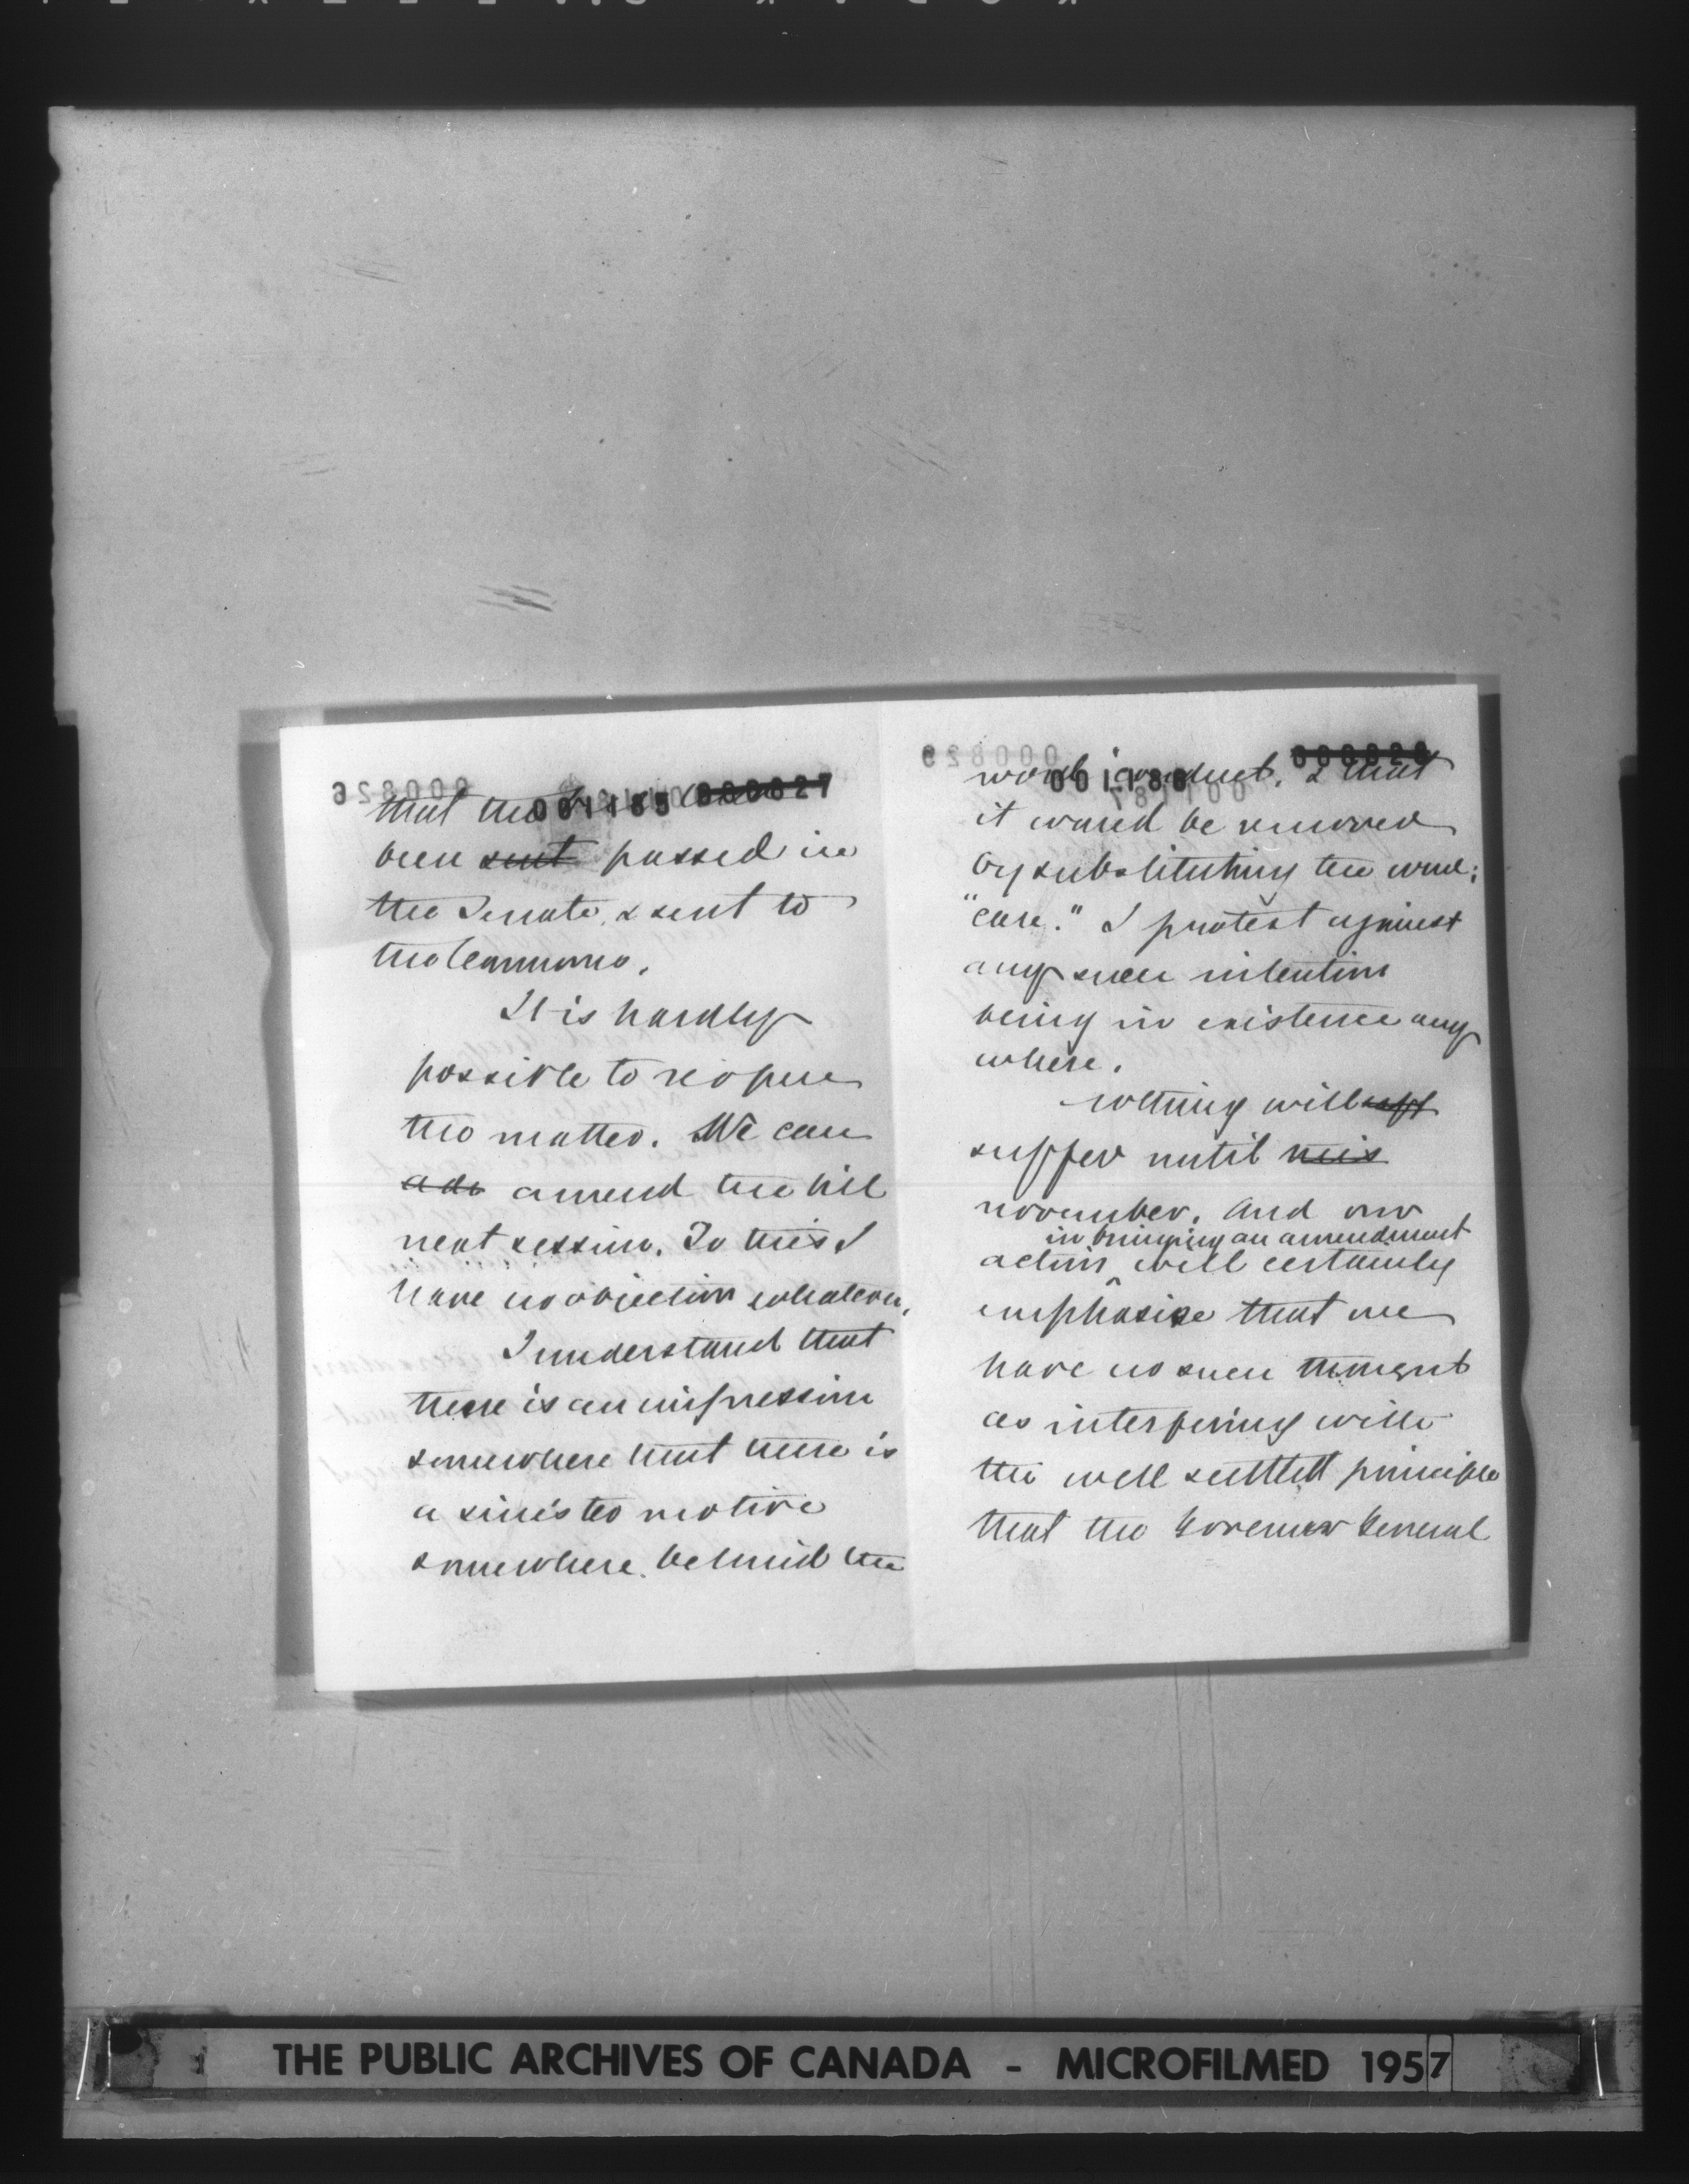 001185 000827
that the bill has
been sent passed in
the Senate, & sent to
the Commons.
It is hardly
possible to reopen
the matter. We can
ado amend the bill
next session. To this I
have no objection whatever.
I understand that
there is an impression
somewhere that there is
a sinister motive
somewhere behind the
001186 000828
word "conduct, & that
it would be removed
by substituting the word:
"care." I protest against
any such intention
being in existence any
where.
Nothing will
suffer until this
november. And our
in bringing an amendment
action ^ will certainly
emphasise that we
have no such thought
as interfering with
the well settled principle
that the Governor General
THE PUBLIC ARCHIVES OF CANADA - MICROFILMED 1957